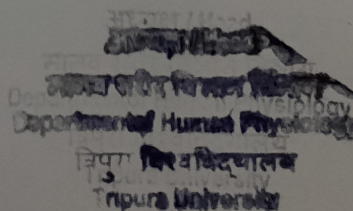 मानव शरीर विज्ञान विभाग
Department of Human Physiology
त्रिपुरा विश्वविद्यालय
Tripura University